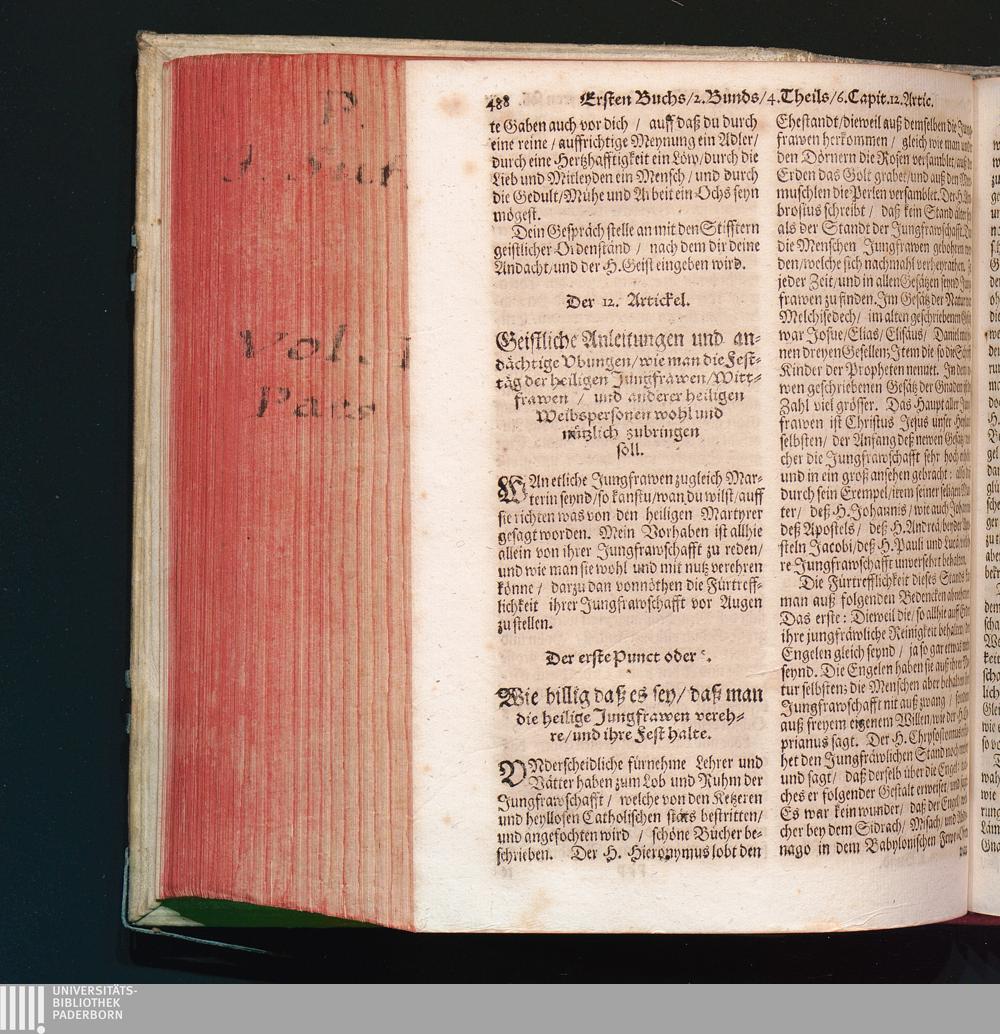 P.
J. Suf
Vol. I
Pars
488 Ersten Buchs/2.Bunds/4.Theils/6.Capit.12.Artic.
te Gaben auch vor dich / auff daß du durch
eine reine / auffrichtige Meynung ein Adler/
durch eine Hertzhafftigkeit ein Löw/durch die
Lieb und Mitleyden ein Mensch/ und durch
die Gedult/Mühe und Arbeit ein Ochs seyn
mögest.
Dein Gespräch stelle an mit den Stifftern
geistlicher Ordenständ / nach dem dir deine
Andacht/und der H.Geist eingeben wird.
Der 12. Artickel.
Geistliche Anleitungen und an-
dächtige Vbungen/wie man die Fest-
täg der heiligen Jungfrawen/Witt-
frawen / und anderer heiligen
Weibspersonen wohl und
nützlich zubringen
soll.
WAn etliche Jungfrawen zugleich Mar-
terin seynd/so kanstu/wan du wilst/auff
sie richten was von den heiligen Martyrer
gesagt worden. Mein Vorhaben ist allhie
allein von ihrer Jungfrawschafft zu reden/
und wie man sie wohl und mit nutz verehren
könne / darzu dan vonnöthen die Fürtreff-
lichkeit ihrer Jungfrawschafft vor Augen
zu stellen.
Der erste Punct oder
Wie billig daß es sey/ daß man
die heilige Jungfrawen vereh-
re/und ihre Fest halte.
VNderscheidliche fürnehme Lehrer und
Vätter haben zum Lob und Ruhm der
Jungfrawschafft / welche von den Ketzeren
und heyllosen Catholischen stäts bestritten/
und angefochten wird / schöne Bücher be-
schrieben. Der H. Hieronymus lobt den
Ehestandt/dieweil auß demselben die
frawen herkommen / gleich wie man
den Dörnern die Rosen versamblet/
Erden das Golt grabet/und auß den
muschlen die Perlen versamblet. Der H.
brosius schreibt / daß kein Stand
als der Standt der Jungfrawschafft.
die Menschen Jungfrawen gebohren
den/welche sich nachmahl verheyrathen.
jeder Zeit/und in allen Gesätzen seynd
frawen zu finden. Im Gesätz der Natur
Melchisedech/ im alten geschriebenen
war Josue/Elias/Elisäus/ Daniel
nen dreyen Gesellen; Item die so die
Kinder der Propheten nennet. In dem
wen geschriebenen Gesätz der Gnaden
Zahl viel grösser. Das Haupt aller
frawen ist Christus Jesus unser
selbsten/ der Anfang deß newen Gesätz
cher die Jungfrawschafft sehr hoch
und in ein groß ansehen gebracht:
durch sein Exempel/item seiner seligen
ter/ deß H.Johannis/ wie auch
deß Apostels/ deß H.Andreä/
steln Jacobi/deß H.Pauli und Lucä
re Jungfrawschafft unversehrt behalten.
Die Fürtrefflichkeit dieses Stands
man auß folgenden Bedencken
Das erste: Dieweil die/so allhie auff
ihre jungfräwliche Reinigkeit behalten
Engelen gleich seynd / ja so gar etwas
seynd. Die Engelen haben sie auß ihrer
tur selbsten; die Menschen aber behalten
Jungfrawschafft nit auß zwang /
auß freyem eigenem Willen/wie der H.
prianus sagt. Der H. Chrysostomus
het den Jungfräwlichen Stand noch
und sagt/ daß derselb über die Engel:
ches er folgender Gestalt erweiset/
Es war kein wunder/ daß der Engel
cher bey dem Sidrach/ Misach/ und
nago in dem Babylonischen
UNIVERSITÄTS-
BIBLIOTHEK
PADERBORN